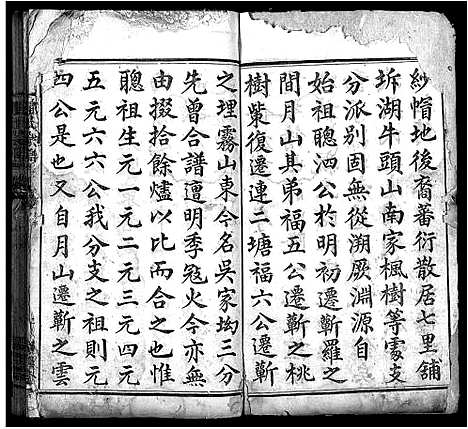 紗帽地後裔蕃衍散居七里舖
坼湖牛頭山南家楓樹等處支
分派別固無從溯厥淵源自
始祖聰泗公於明初遷蘄羅之
間月山其弟福五公遷蘄之桃
樹葉復遷連二塘福六公遷蘄
之埋霧山東今名吳家坳三分
先曾合譜遭明季冦火今亦無
由掇拾餘燼以比而合之也惟
聰祖生元一元二元三元四元
五元六六公我分支之祖則元
四公是也又自月山遷蘄之雲